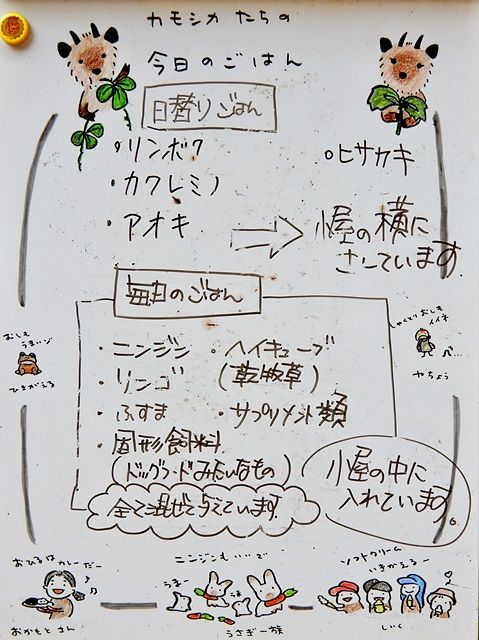 カモシカたちの
今日のごはん
日替りごはん
・リンボク
・カクレミノ
・アオキ
・ヒサカキ
小屋の横に
さしています
毎日のごはん
・ニンジン
・リンゴ
・ふすま
・固形飼料
(ドッグフードみたいなもの)
・ヘイキューブ
(乾牧草)
・サプリメント類
全て混ぜて与えています。
小屋の中に
入れています。
おいも
うまいッ
ひきがえる
おいも
イイネ
やちょう
おひるはカレーだー
おかもとさん
ニンジンもいいで
うまー
うま
うさぎ一族
ソフトクリーム
いきがえるー
しいく